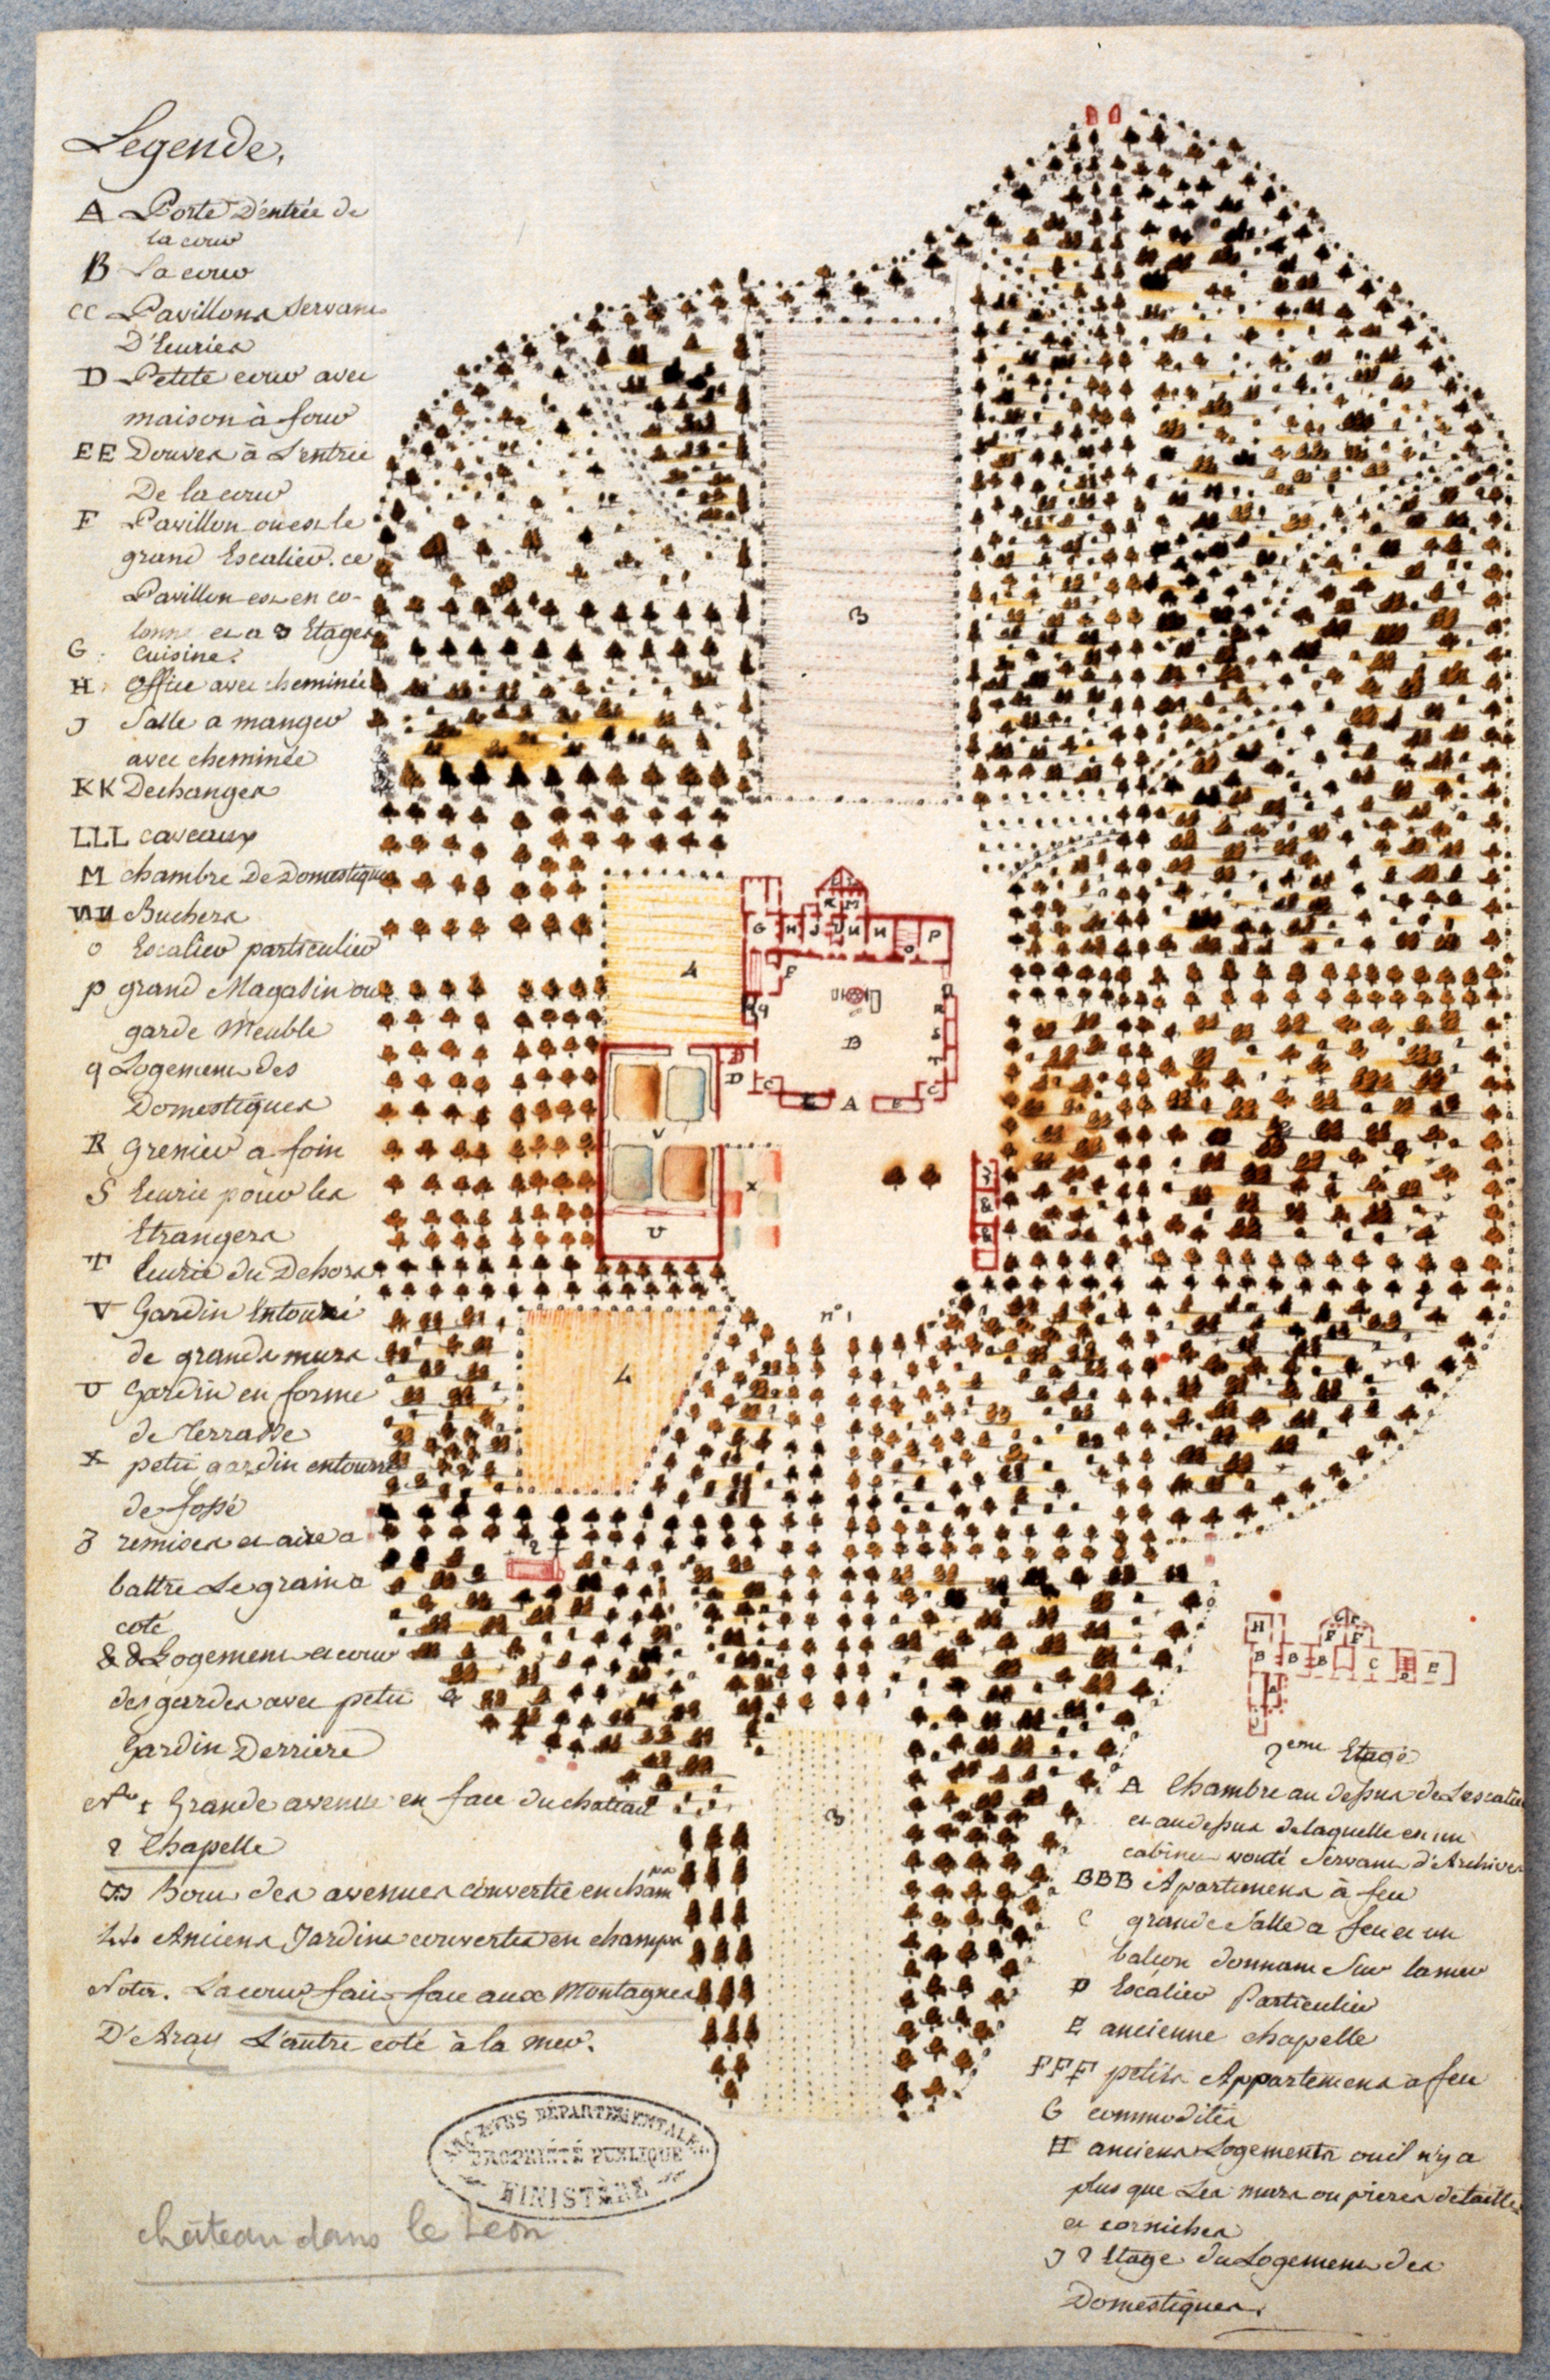 Legende.
A Porte D'entrée de
la cour
B La cour
CC Pavillons servans
D'Ecuries
D Petite cour avec
maison à four
EE Douves à L'entrée
De la cour
F Pavillon ou est le
grand Escalier. ce
Pavillon est en co-
lonne et a 3 Etages
G Cuisine.
H office avec cheminée
J Salle a manger
avec cheminée
KK Dechanges
LLL caveaux
M chambre De Domestiques
NN Buchers
O Escalier particulier
P grand Magasin ou
garde Meuble
q Logement des
Domestiques
R Grenier a foin
S Ecurie pour les
Etrangers
T Ecurie du Dehors
V Gardin Entouré
de grands murs
U Gardin en forme
de terrasse
X petit gardin entouré
de fossé
Z remises et aire a
battre Le grain a
coté
& & Logement et cour
des gardes avec petit
Gardin Derriere
N° 1 Grande avenue en face du chateau
2 Chapelle
33 Bout des avenues convertie en cham
ps
44 Anciens Jardins convertis en champs
Nota. La cour fait face aux Montagnes
D'Aray L'autre coté à la mer.
ARCHIVES DÉPARTEMENTALES
PROPRIÉTÉ PUBLIQUE
FINISTÈRE
château dans le Léon
3
4
G H J U N N P
K M
O
F
q
B
R
S
T
D
C C
E A E
V
X
U
&
&
n° 1
4
2
3
H
G G
F F
B B B C D E
A
J
2eme Etage
A Chambre au dessus de L'escalier
et au dessus de laquelle est un
cabinet vouté servant d'Archives
BBB Apartemens à feu
C grande Salle a feu et un
balcon donnant Sur la mer
D Escalier Particulier
E ancienne chapelle
FFF petits Appartemens a feu
G commodités
H anciens Logements ou il n'y a
plus que Les murs ou pieres de taille
et corniches
J 2 Etage du Logement des
Domestiques.